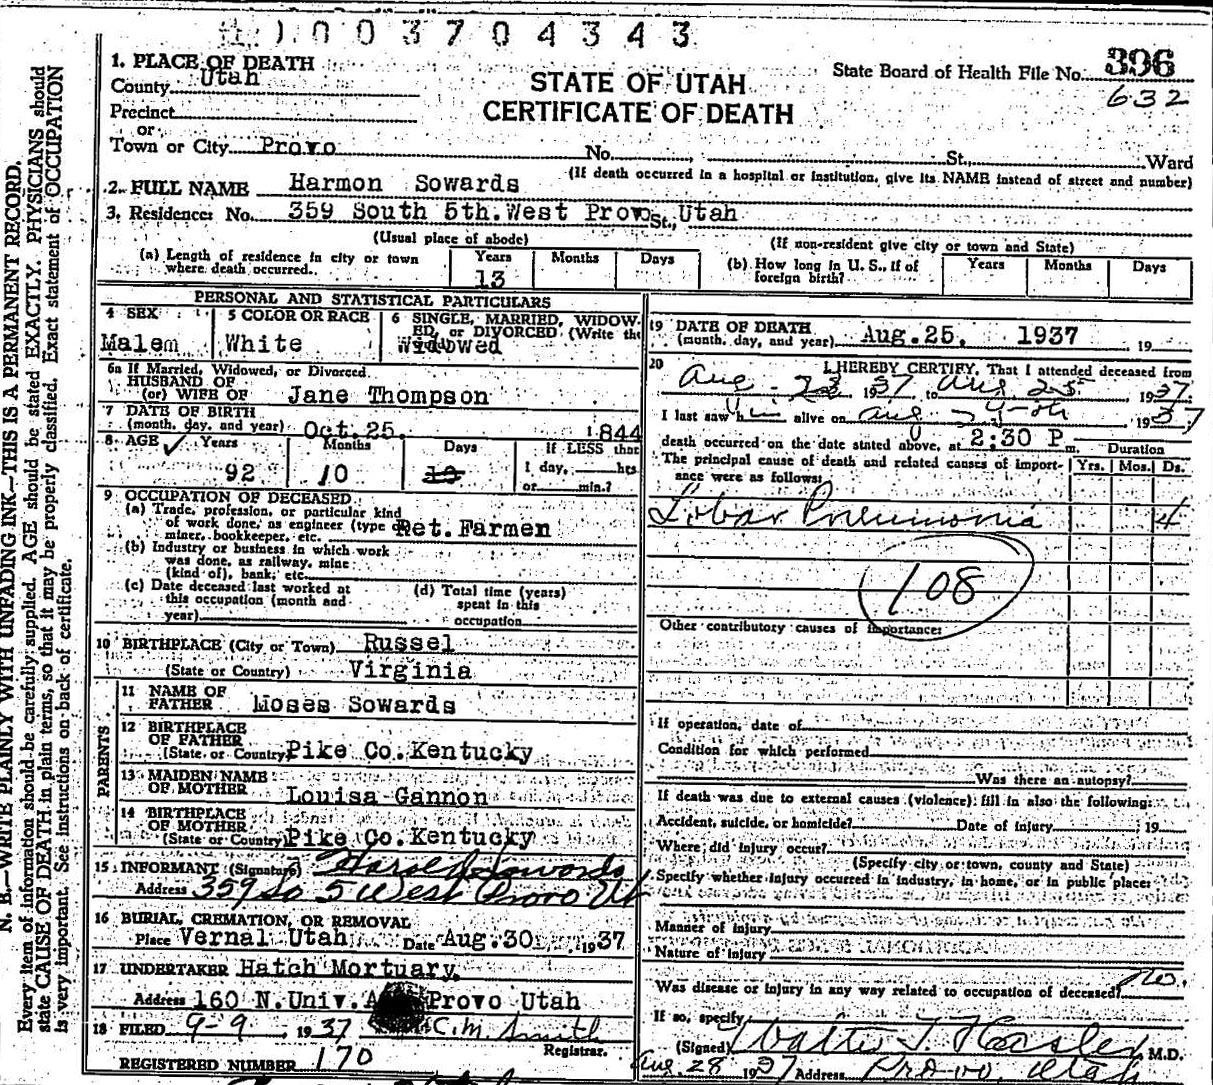 1003704343
1. PLACE OF DEATH
County Utah
STATE OF UTAH
CERTIFICATE OF DEATH
State Board of Health File No. 396
632
Precinct
or
Town or City Provo No. , St., Ward
(If death occurred in a hospital or institution, give its NAME instead of street and number)
2. FULL NAME Harmon Sowards
3. Residence: No. 359 South 5th. West Provo St., Utah
(Usual place of abode) (If non-resident give city or town and State)
(a) Length of residence in city or town where death occurred. Years 13 Months Days
(b) How long in U. S., if of foreign birth? Years Months Days
PERSONAL AND STATISTICAL PARTICULARS
4 SEX Malem
5 COLOR OR RACE White
6 SINGLE, MARRIED, WIDOWED, or DIVORCED (Write the
Widowed
6a If Married, Widowed, or Divorced
HUSBAND OF
(or) WIFE OF Jane Thompson
7 DATE OF BIRTH
(month, day, and year) Oct. 25. 1844
8 AGE Years 92 Months 10 Days
If LESS than
1 day, hrs
or min.?
9 OCCUPATION OF DECEASED
(a) Trade, profession, or particular kind
of work done, as engineer (type
miner, bookkeeper, etc. Ret. Farmen
(b) Industry or business in which work
was done, as railway, mine
(kind of), bank, etc.
(c) Date deceased last worked at
this occupation (month and
year)
(d) Total time (years)
spent in this
occupation
10 BIRTHPLACE (City or Town) Russel
(State or Country) Virginia
PARENTS
11 NAME OF
FATHER Moses Sowards
12 BIRTHPLACE
OF FATHER
(State or Country) Pike Co. Kentucky
13 MAIDEN NAME
OF MOTHER Louisa Gannon
14 BIRTHPLACE
OF MOTHER
(State or Country) Pike Co. Kentucky
15 INFORMANT (Signature) Harold Sowards
Address 359 So 5 West Provo Ut
16 BURIAL, CREMATION, OR REMOVAL
Place Vernal Utah Date Aug. 30 1937
17 UNDERTAKER Hatch Mortuary.
Address 160 N. Univ. Provo Utah
18 FILED 9-9, 1937 C. M. Smith
Registrar.
REGISTERED NUMBER 170
19 DATE OF DEATH
(month, day, and year) Aug. 25. 1937 19
20 I HEREBY CERTIFY, That I attended deceased from
Aug. 23 1937 to Aug 25 1937
I last saw him alive on Aug 1937
death occurred on the date stated above, at 2:30 P m.
Duration
The principal cause of death and related causes of importance were as follows:
Yrs. Mos. Ds.
Lobar Pneumonia 4
108
Other contributory causes of importance:
If operation, date of
Condition for which performed
Was there an autopsy?
If death was due to external causes (violence) fill in also the following:
Accident, suicide, or homicide? Date of injury 19
Where did injury occur?
(Specify city or town, county and State)
Specify whether injury occurred in industry, in home, or in public place:
Manner of injury
Nature of injury
Was disease or injury in any way related to occupation of deceased? no.
If so, specify
(Signed) Walter T. Hasler M.D.
Aug. 28 1937 Address Provo, Utah
N. B.—WRITE PLAINLY WITH UNFADING INK—THIS IS A PERMANENT RECORD.
Every item of information should be carefully supplied. AGE should be stated EXACTLY. PHYSICIANS should
state CAUSE OF DEATH in plain terms, so that it may be properly classified. Exact statement of OCCUPATION
is very important. See instructions on back of certificate.